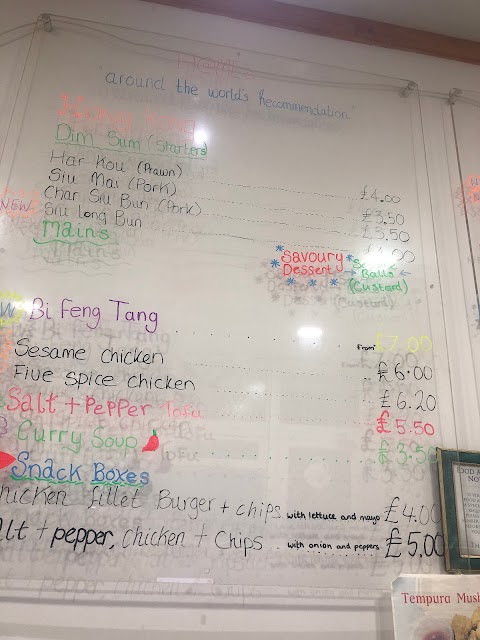 "around the world's Recommendation"
Hong Kong
Dim Sum (Starters)
Har Kou (Prawn) £4.00
Siu Mai (Pork) £3.50
NEW Char Siu Bun (Pork) £3.50
Siu Long Bun £4.00
Mains
Savoury Dessert
Balls
(Custard)
Bi Feng Tang from £7.00
Sesame chicken £6.00
Five spice chicken £6.20
Salt + Pepper Tofu £5.50
Curry Soup £3.50
Snack Boxes
chicken fillet Burger + chips with lettuce and mayo £4.00
alt + pepper, chicken + Chips with onion and peppers £5.00
FOOD A
NO
Tempura Mush